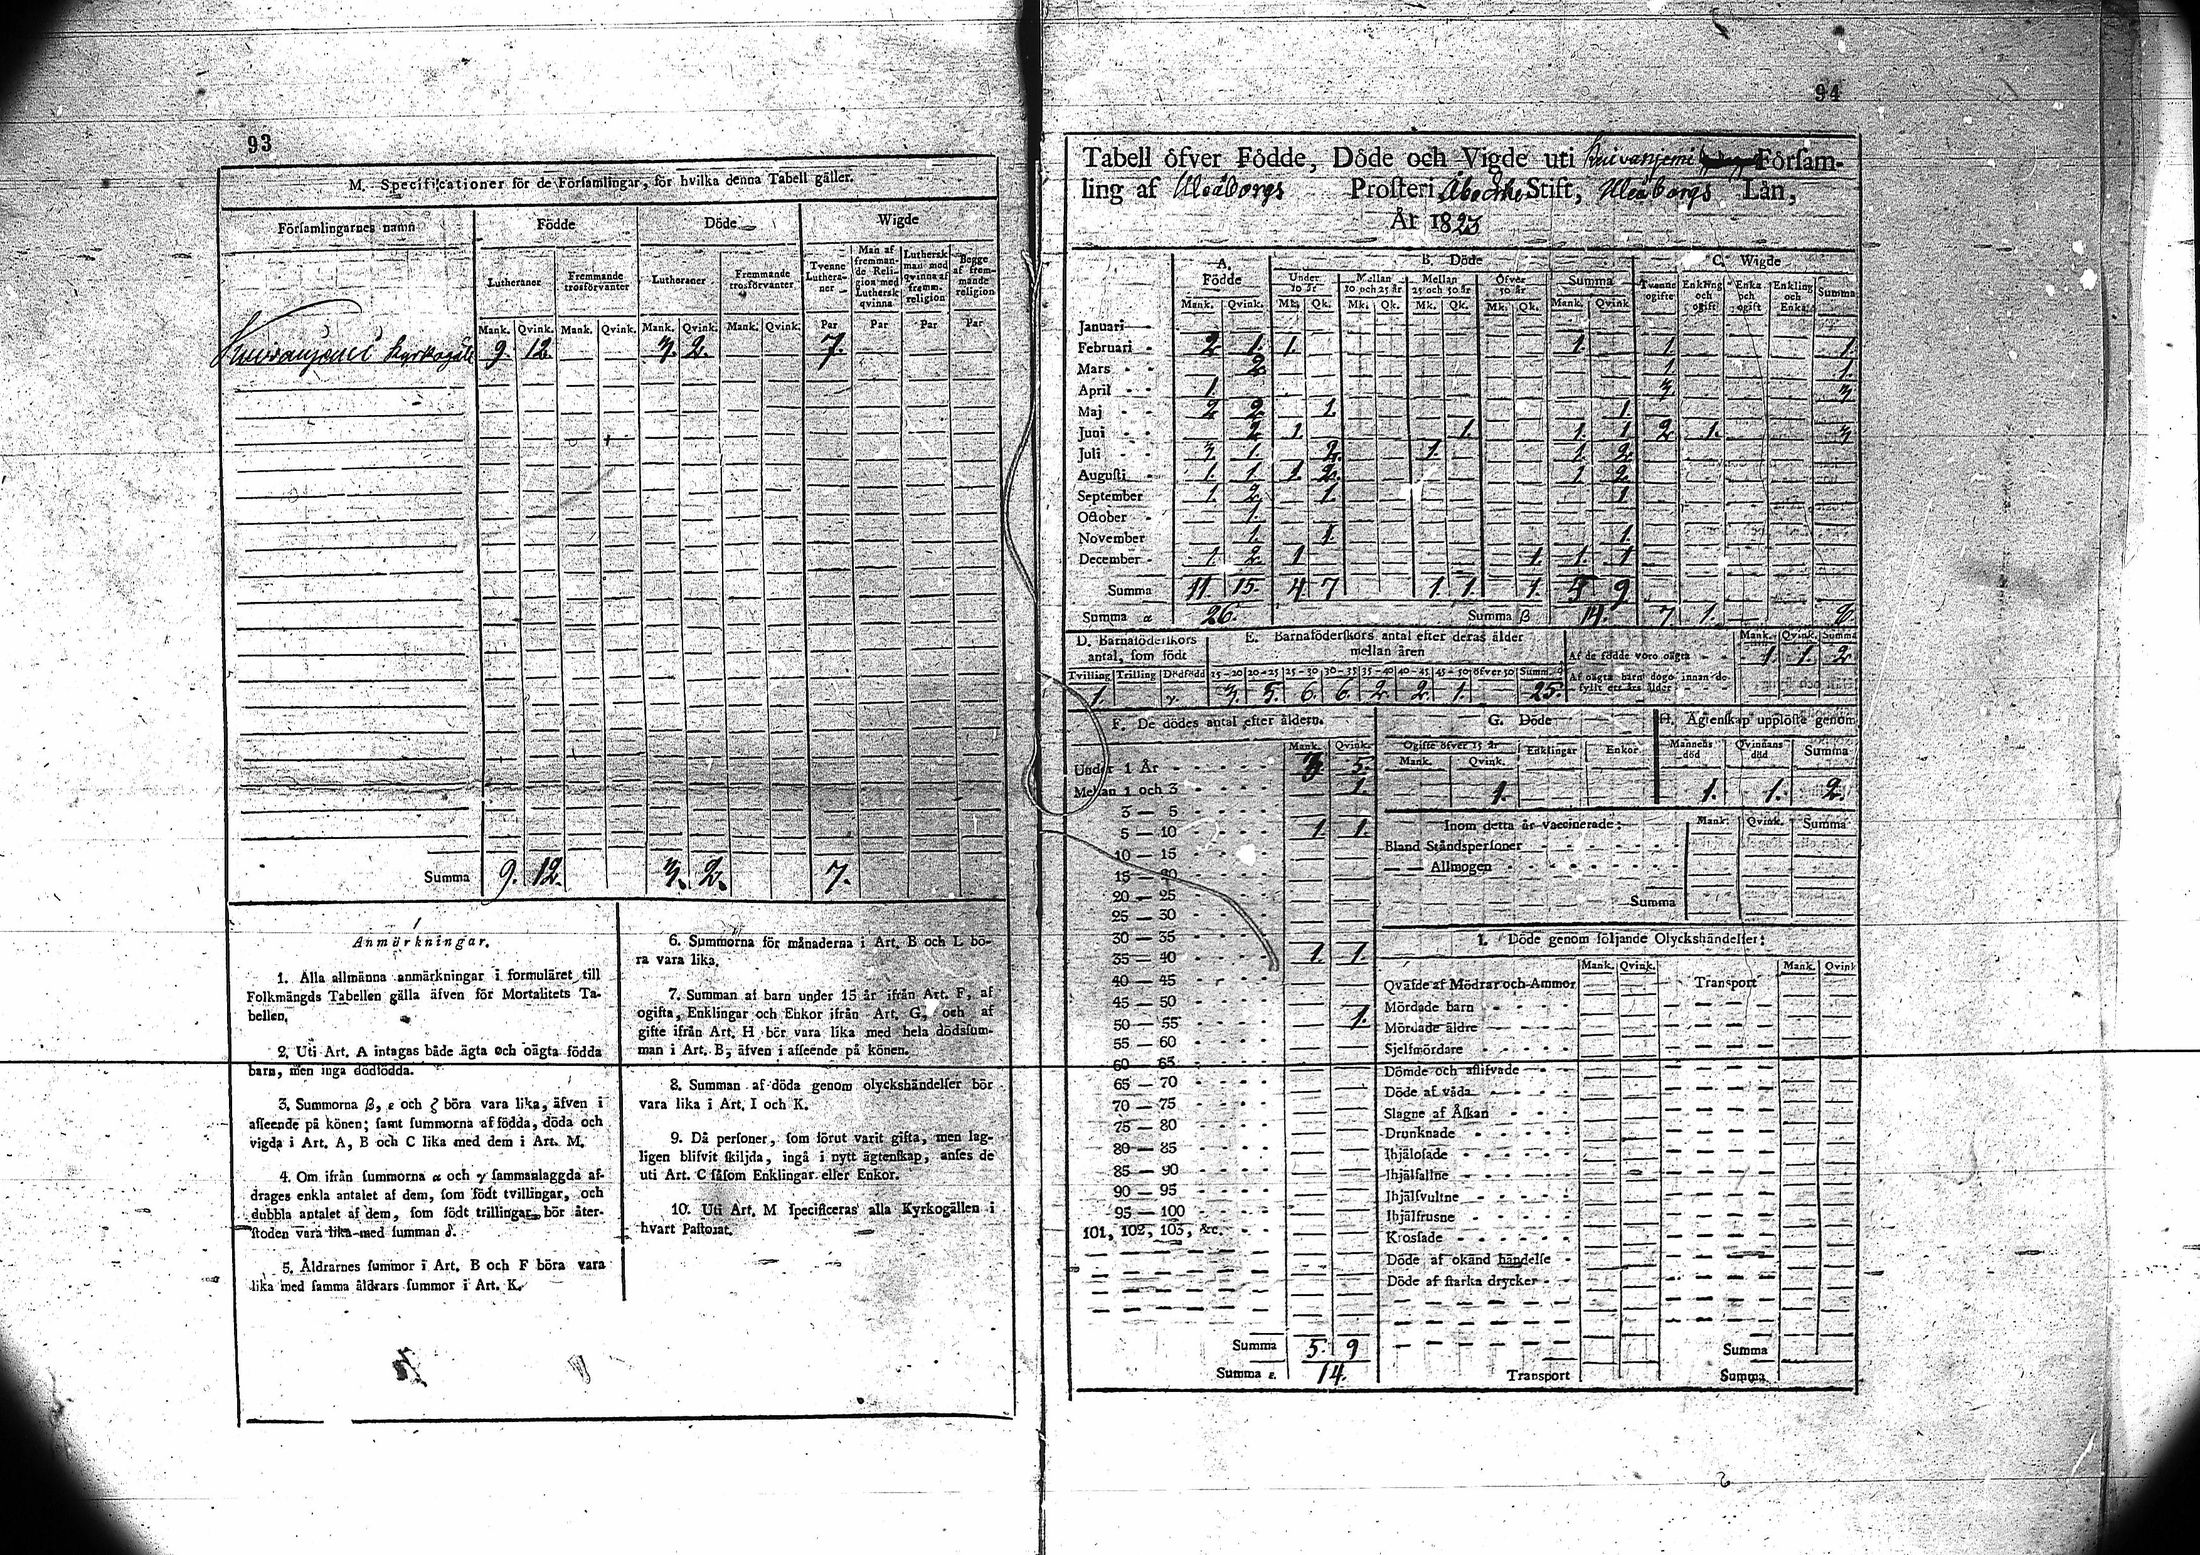 93
M. Specificationer för de Församlingar, för hvilka denna Tabell gäller.
Församlingarnes namn
Födde
Döde
Wigde
Lutheraner
Fremmande trosförvanter
Lutheraner
Fremmande trosförvanter
Tvenne Lutheraner
Man af fremmande Religion med Luthersk qvinna
Luthersk man med qvinna af fremm. religion
Begge af fremmande religion
Mank. Qvink. Mank. Qvink. Mank. Qvink. Mank. Qvink. Par Par Par Par
Kuivaniemi 9. 12. 3. 2. 7.
Summa 9. 12. 3. 2. 7.
Anmärkningar.
1. Alla allmänna anmärkningar i formuläret till
Folkmängds Tabellen gälla äfven för Mortalitets Ta-
bellen.
2. Uti Art. A intagas både ägta och oägta födda
barn, men inga dödfödda.
3. Summorna β, ε och ζ böra vara lika, äfven i
afseende på könen; samt summorna af födda, döda och
vigda i Art. A, B och C lika med dem i Art. M.
4. Om ifrån summorna α och γ sammanlaggda af-
drages enkla antalet af dem, som födt tvillingar, och
dubbla antalet af dem, som födt trillingar, bör åter-
stoden vara lika med summan δ.
5. Åldrarnes summor i Art. B och F böra vara
lika med samma åldrars summor i Art. K.
6. Summorna för månaderna i Art. B och L bö-
ra vara lika.
7. Summan af barn under 15 år ifrån Art. F, af
ogifta, Enklingar och Enkor ifrån Art. G, och af
gifte ifrån Art. H bör vara lika med hela dödssum-
man i Art. B, äfven i afseende på könen.
8. Summan af döda genom olyckshändelser bör
vara lika i Art. I och K.
9. Då personer, som förut varit gifta, men lag-
ligen blifvit skiljda, ingå i nytt ägtenskap, anses de
uti Art. C såsom Enklingar eller Enkor.
10. Uti Art. M specificeras alla Kyrkogällen i
hvart Pastorat.
94
Tabell öfver Födde, Döde och Vigde uti Kuivaniemi Församling
ling af Uleåborgs Prosteri, Åboske Stift, Uleåborgs Län,
År 1823
A. Födde
B. Döde
C. Wigde
Under 10 år
Mellan 10 och 25 år
Mellan 25 och 50 år
Öfver 50 år
Summa
Tvenne ogifte
Enkling och ogift
Enka och ogift
Enkling och Enka
Summa
Mank. Qvink. Mk. Qk. Mk. Qk. Mk. Qk. Mk. Qk. Mank. Qvink
Januari
Februari 2 1. 1. 1. 1. 1.
Mars 2 1 1.
April 1. 3. 3
Maj 2 2. 1. 1.
Juni 2 1. 1. 1 1 2 1. 3
Juli 3 1. 2. 1. 1. 2.
Augusti 1. 1. 1. 2. 1 2.
September 1. 2. 1. 1
October 1.
November 1. 1. 1.
December 1. 2. 1. 1. 1. 1
Summa 11 15. 4 7 1 1. 1. 5 9
Summa α 26. Summa β 14. 7 1. 8
D. Barnaföderskors antal, som födt
E. Barnaföderskors antal efter deras ålder mellan åren
Mank. Qvink. Summa
Af de födde voro oägta 1. 1. 2
Af oägta barn dogo innan de fyllt ett års ålder
Tvilling Trilling Dödfödd 15–20 20–25 25–30 30–35 35–40 40–45 45–50 öfver 50 Summ. δ
1. γ. 3. 5. 6 6. 2. 2. 1. 25.
F. De dödes antal efter åldern.
Mank. Qvink.
Under 1 År 3 5.
Mellan 1 och 3 1.
3 — 5
5 — 10 1 1.
10 — 15
15 — 20
20 — 25
25 — 30
30 — 35
35 — 40 1 1.
40 — 45
45 — 50
50 — 55 1.
55 — 60
60 — 65
65 — 70
70 — 75
75 — 80
80 — 85
85 — 90
90 — 95
95 — 100
101, 102, 103, &c.
Summa 5. 9
Summa ε. 14.
G. Döde
Ogifte öfver 15 år Enklingar Enkor
Mank. Qvink.
1.
H. Ägtenskap upplöste genom
Mannens död Qvinnans död Summa
1. 1. 2.
Inom detta år vaccinerade: Mank. Qvink. Summa
Bland Ståndspersoner
— — Allmogen
Summa
I. Döde genom följande Olyckshändelser:
Mank. Qvink. Mank. Qvink
Qväfde af Mödrar och Ammor Transport
Mördade barn
Mördade äldre
Sjelfmördare
Dömde och aflifvade
Döde af våda
Slagne af Åskan
Drunknade
Ihjälosade
Ihjälfallne
Ihjälsvultne
Ihjälfrusne
Krossade
Döde af okänd händelse
Döde af starka drycker
Summa
Transport Summa